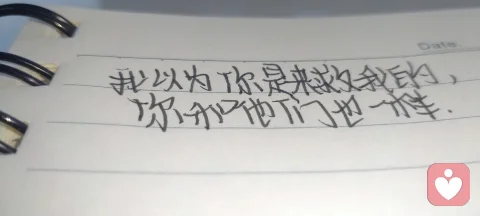 Date
我以为你是来救我的，
你和他们也一样.